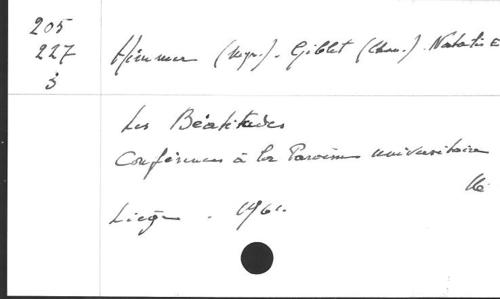 205
227
3
Himmer (Mgr.). Giblet (Chan.).
Les Béatitudes
Conférences à la Paroisse universitaire
Liège. 1961.